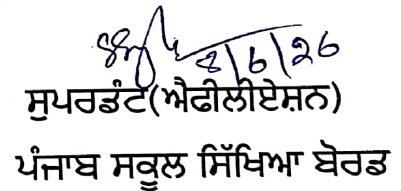 8/6/26
ਸੁਪਰਡੰਟ(ਐਫੀਲੀਏਸ਼ਨ)
ਪੰਜਾਬ ਸਕੂਲ ਸਿੱਖਿਆ ਬੋਰਡ